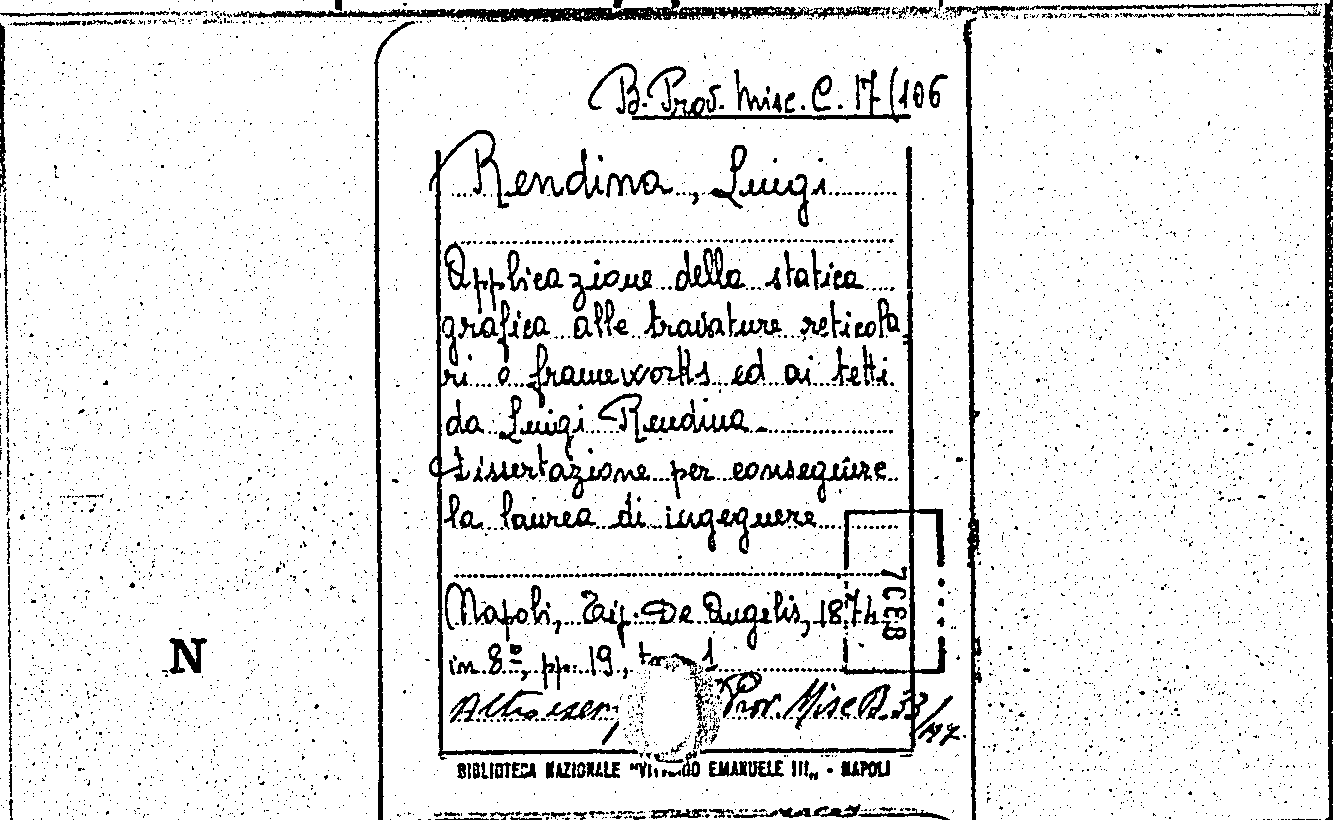 B. Prov. Misc. C. 17 (106
Rendina, Luigi
Applicazione della statica
grafica alle travature reticola-
ri o frameworks ed ai tetti
da Luigi Rendina.
Dissertazione per conseguire
la laurea di ingegnere
Napoli, Tip. De Angelis, 1874
in 8º, pp. 19, 1
Altro esem. Prov. Misc B. 33/197
7CEB
N
BIBLIOTECA NAZIONALE "VITTORIO EMANUELE III„ - NAPOLI